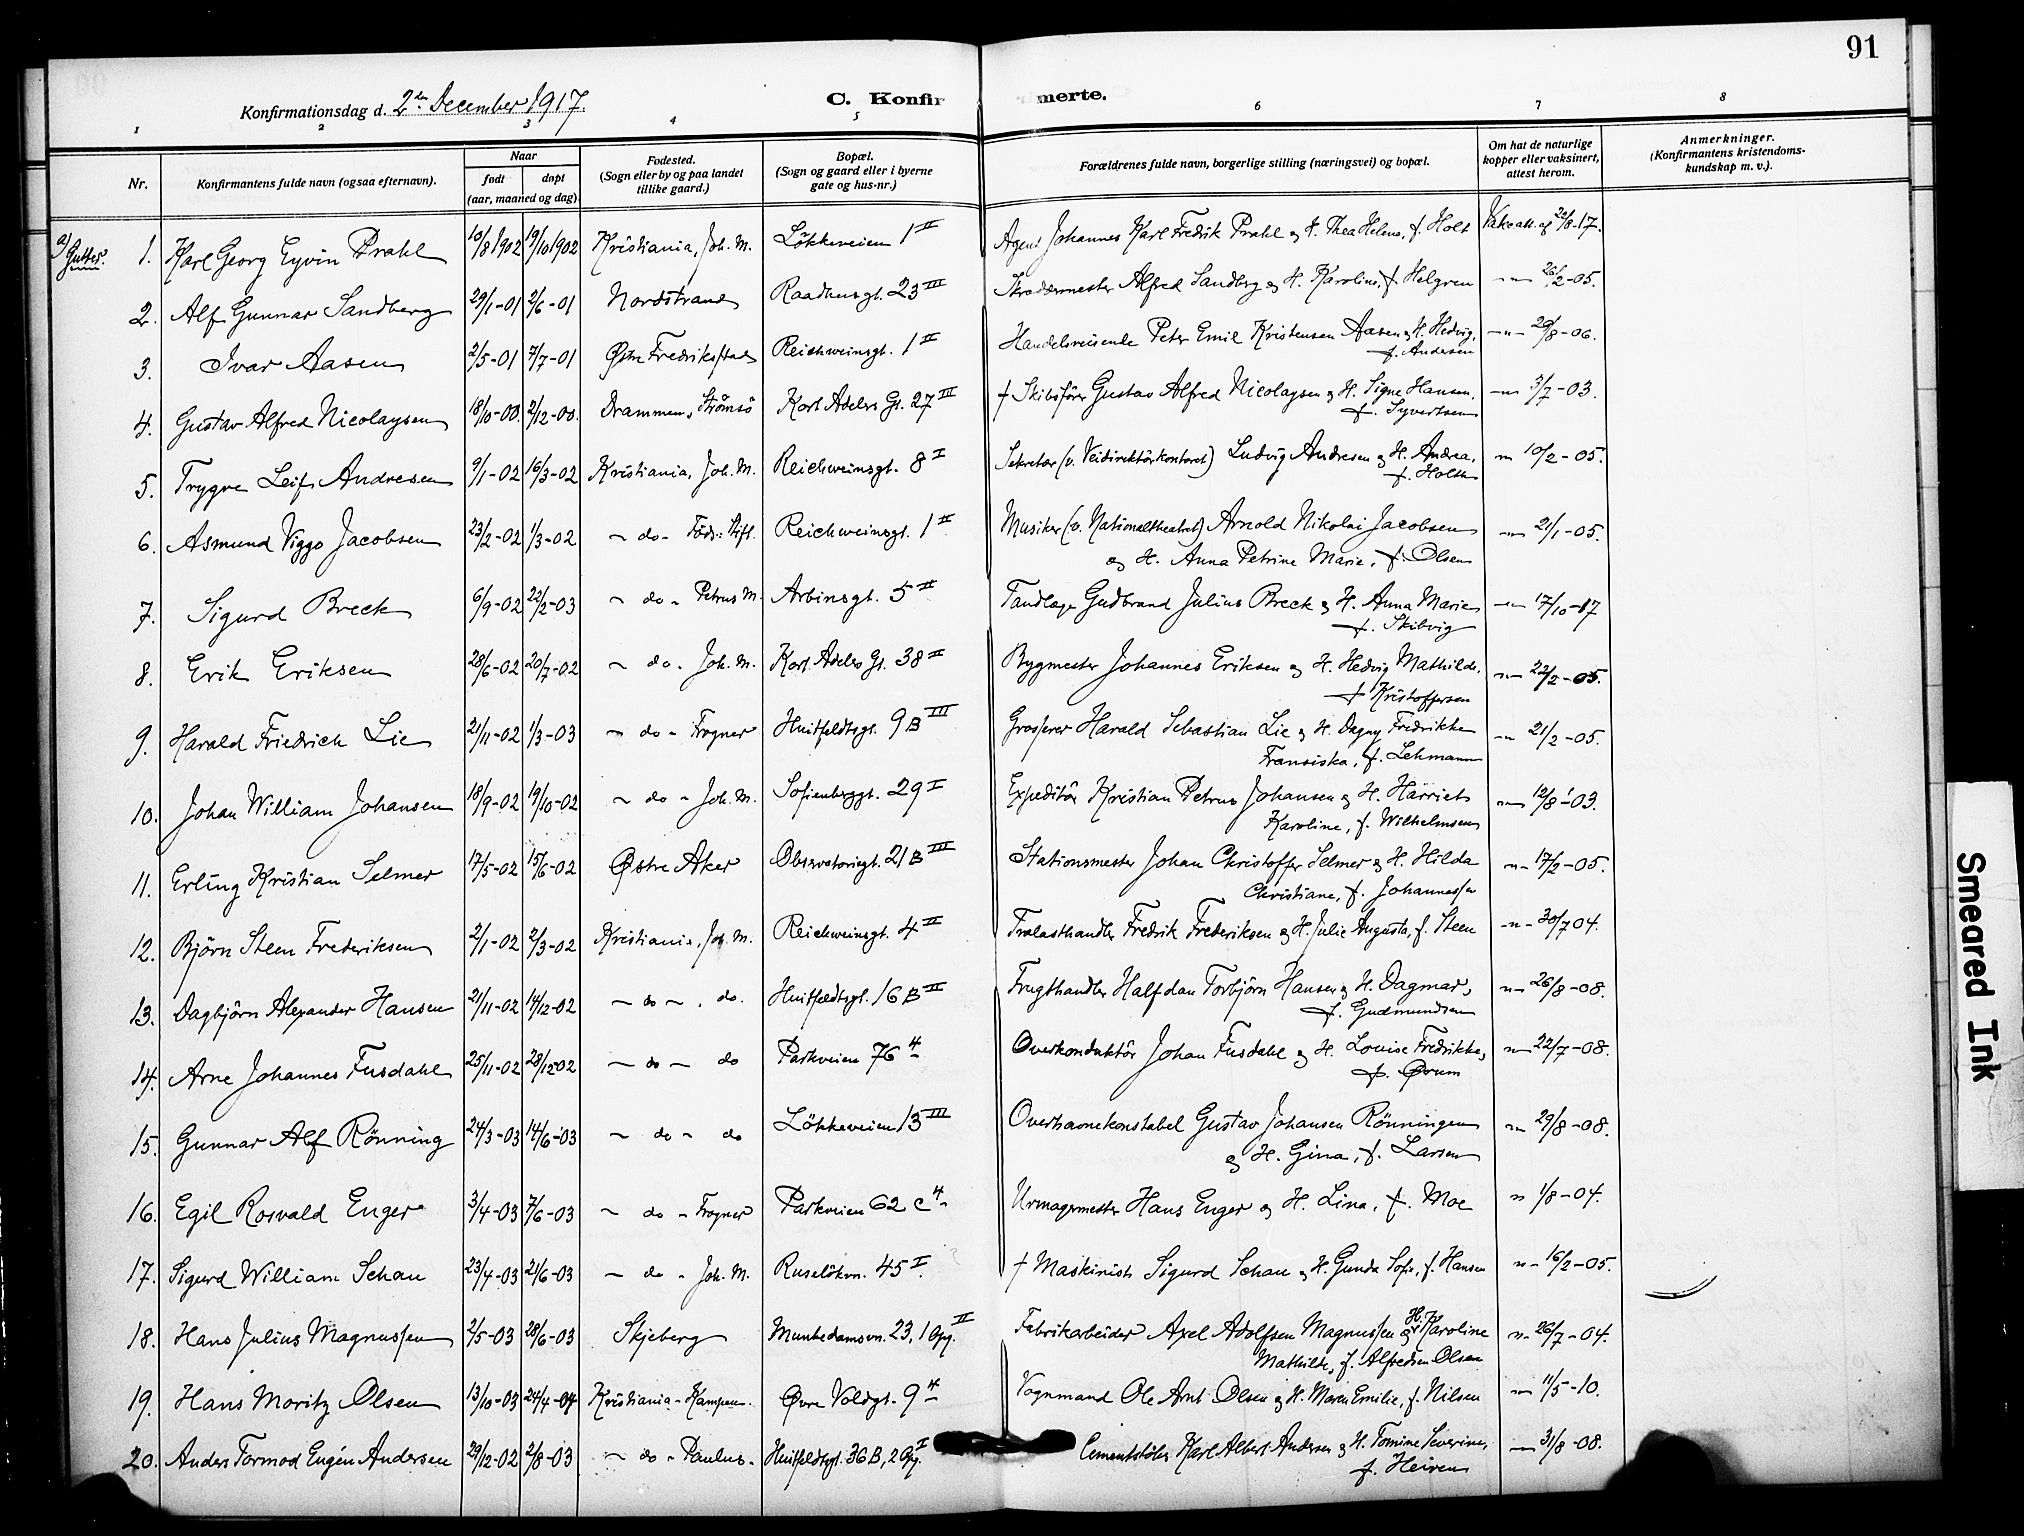 91
Konfirmationsdag d. 2den December 1917.
C. Konfir merte.
1 2 3 4 5 6 7 8
Nr. Konfirmantens fulde navn (ogsaa efternavn). Naar født døpt (aar, maaned og dag) Fødested. (Sogn eller by og paa landet tillike gaard.) Bopæl. (Sogn og gaard eller i byerne gate og hus-nr.) Forældrenes fulde navn, borgerlige stilling (næringsvei) og bopæl. Om hat de naturlige kopper eller vaksinert, attest herom. Anmerkninger. (Konfirmantens kristendoms-kundskap m. v.).
a/ Gutter.
1. Karl Georg Eyvin Prahl 10/8 1902 19/10 1902 Kristiania, Joh. M. Lökkeveien 1 II Agent Johannes Karl Fredrik Prahl og H. Thea Helene, f. Holt Vakc. att. af 22/8-17.
2. Alf Gunnar Sandberg 29/1-01 2/6-01 Nordstrand Raadhusgt. 23 III Skrædermester Alfred Sandberg og H. Karoline, f. Helgren -"- 26/2-05.
3. Ivar Aasen 2/5-01 7/7-01 Østre Fredrikstad Reichweinsgt. 1 II Handelsreisende Peter Emil Kristensen Aasen og H. Hedvig, -"- 29/8-06.
f. Andersen
4. Gustav Alfred Nicolaysen 18/10-00. 2/12-00. Drammen, Strömsö Kort Adelers Gt. 27 III † Skibsförer Gustav Alfred Nicolaysen og H. Signe Hansen, -"- 3/7-03.
f. Syvertsen
5. Trygve Leif Andresen 9/1-02 16/3-02 Kristiania, Joh. M. Reichweinsgt. 8 I Sekretær (v. Veidirektörkontoret) Ludvig Andresen og H. Andrea, -"- 10/2-05.
f. Holth
6. Asmund Viggo Jacobsen 23/2-02 1/3-02 - do - Föds. Stift. Reichweinsgt. 1 II Musiker (v. Nationaltheatret) Arnold Nikolai Jacobsen -"- 21/1-05.
og H. Anna Petrine Marie, f. Olsen
7. Sigurd Breck 6/9-02 22/2-03 - do - Petrus M. Arbinsgt. 5 II Tandlæge Gudbrand Julius Breck og H. Anna Marie -"- 17/10-17
f. Skibvig
8. Erik Eriksen 28/6-02 20/7-02 - do - Joh. M. Kort Adelers Gt. 38 II Bygmester Johannes Eriksen og H. Hedvig Mathilde, -"- 22/2-05.
f. Kristoffersen
9. Harald Friedrich Lie 21/11-02 1/3-03 - do - Frogner Huitfeldtsgt. 9 B III Grosserer Harald Sebastian Lie og H. Dagny Fredrikke -"- 21/2-05.
Fransiska, f. Lehmann
10. Johan William Johansen 18/9-02 19/10-02 - do - Joh. M. Sofienberggt. 29 I Expeditör Kristian Petrus Johansen og H. Harriet -"- 12/8-03.
Karoline, f. Wilhelmsen
11. Erling Kristian Selmer 17/5-02 15/6-02 Østre Aker Observatoriegt. 21 B III Stationsmester Johan Christoffer Selmer og H. Hilda -"- 17/2-05.
Christiane, f. Johannessen
12. Björn Steen Frederiksen 2/1-02 2/3-02 Kristiania, Joh. M. Reichweinsgt. 4 II Trælasthandler Fredrik Frederiksen og H. Julie Augusta, f. Steen -"- 30/7 04.
13. Dagbjörn Alexander Hansen 21/11-02 14/12-02 - do - , do. Huitfeldtsgt. 16 B II Frugthandler Halfdan Torbjörn Hansen og H. Dagmar, -"- 26/8-08.
f. Gudmundsen
14. Arne Johannes Fusdahl 25/11-02 28/12 02 - do - do Parkveien 76 4 Overkonduktör Johan Fusdahl og H. Louise Fredrikke, -"- 22/7-08.
f. Ørum
15. Gunnar Alf Rönning 24/3-03 14/6-03 - do - do Lökkeveien 13 III Overhavnekonstabel Gustav Johansen Rönningen -"- 29/8-08.
og H. Gina, f. Larsen
16. Egil Rosvald Enger 3/4-03 7/6-03 - do - Frogner Parkveien 62 c 4 Urmagermester Hans Enger og H. Lina, f. Moe -"- 1/8-04.
17. Sigurd William Schau 23/4-03 21/6-03 - do - Joh. M. Ruselökvn. 45 I. † Maskinist Sigurd Schau og H. Gunda Sofie, f. Hansen -"- 16/2-05.
18. Hans Julius Magnussen 2/5-03 28/6-03 Skjeberg Munkedamsvn. 23, 1 Opg. II Fabrikarbeider Axel Adolfsen Magnussen og H. Karoline -"- 26/7-04.
Mathilde, f. Alfredsen Olsen
19. Hans Moritz Olsen 13/10-03 24/4-04 Kristiania - Kampen. Øvre Voldgt. 9 4 Vognmand Ole Arnt Olsen og H. Maren Emilie, f. Nilsen -"- 11/5-10.
20. Anders Tormod Eugén Andersen 29/12-02 2/8-03 - do - Paulus - Huitfeldtsgt. 36 B, 2 Opg. I Cementstöber Karl Albert Andersen og H. Tomine Severine, -"- 31/8-08.
f. Heiren
Smeared Ink